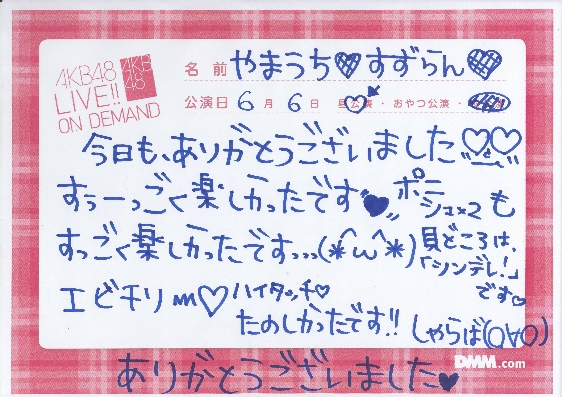 AKB48
LIVE!!
ON DEMAND
AKB
48
名前 やまうち♡すずらん♡
公演日 6月 6日 昼公演・おやつ公演・
今日も、ありがとうございました♡♡
すぅーっごく楽しかったです♥ ポニシュ×2 も
すっごく楽しかったです、、、(*^ω^*) 見どころは、
「シンデレ!」
です♡
エビチリ ♡ ハイタッチ♡
たのしかったです!! しゃらば(O∀O)
DMM.com
ありがとうございました♥